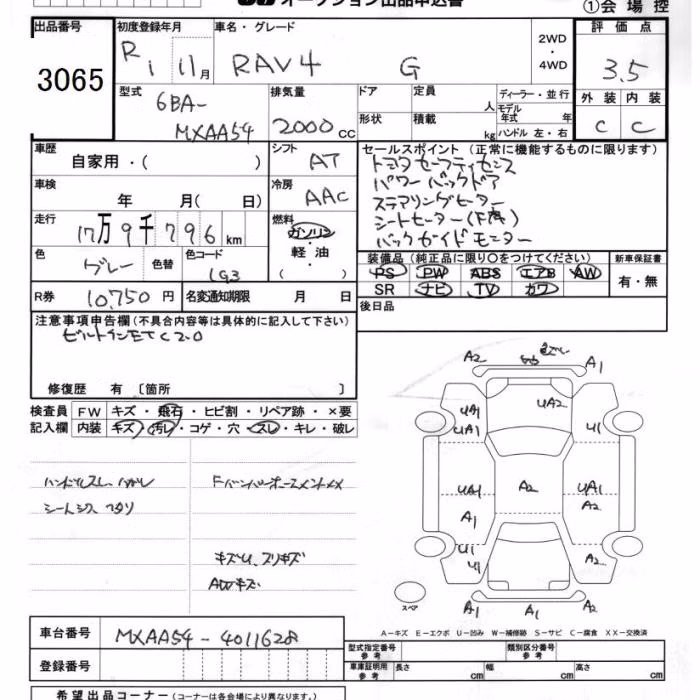 オークション出品申込書
①会場控
出品番号 3065
初度登録年月 R1 11月
車名・グレード RAV4 G
2WD・4WD
評価点 3.5
型式 6BA-MXAA54
排気量 2000cc
ドア 定員 人
形状 積載 kg
ディーラー・並行
モデル年式 年
ハンドル 左・右
外装 内装
C C
車歴 自家用・( )
シフト AT
車検 年 月( 日)
冷房 AAC
走行 17万9千796km
燃料 ガソリン・軽油・( )
色 グレー 色替 色コード 1G3
R券 10750円 名変通知期限 月 日
セールスポイント(正常に機能するものに限ります)
トヨタセーフティセンス
パワーバックドア
ステアリングヒーター
シートヒーター(F席)
バックガイドモニター
装備品(純正品に限り〇をつけてください) 新車保証書
PS PW ABS エアB AW 有・無
SR ナビ TV カワ
後日品
注意事項申告欄(不具合内容等は具体的に記入して下さい)
ビルトインETC2.0
修復歴 有〔箇所 〕
検査員記入欄
FW キズ・飛石・ヒビ割・リペア跡・×要
内装 キズ・汚レ・コゲ・穴・スレ・キレ・破レ
ハンドルスレ、ハガレ
シートシワ、ヘタリ
キズU、スリキズ
AWキズ
A2 A1
UA1 UA2 U1
UA1 A2 UA1
A1 A2
U1
U1 A2
A2 A1 A1
スペア
A-キズ E-エクボ U-凹み W-補修跡 S-サビ C-腐食 XX-交換済
車台番号 MXAA54-4011628
登録番号
型式指定番号参考 類別区分番号参考
車庫証明用参考 長さ cm 幅 cm 高さ cm
希望出品コーナー(コーナーは各会場により異なります。)